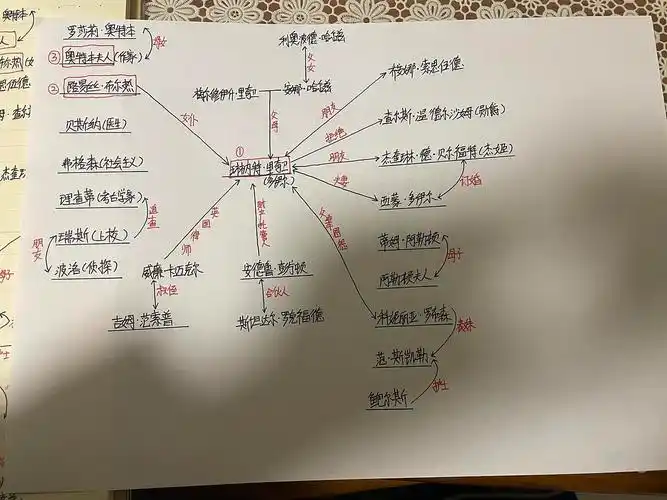 罗莎莉·奥特本
母女
③ 奥特本夫人(作家)
② 路易丝·布尔热
女仆
贝斯纳(医生)
弗格森(社会主义)
理查蒂(考古学家)
追查
瑞斯(上校)
朋友
波洛(侦探)
利奥波德·哈兹
父女
梅尔修伊什·里奇卫
安娜·哈兹
父母
①
琳内特·里奇卫
(多伊尔)
朋友
布娜·索思伍德
拒绝
查尔斯·温德尔沙姆(勋爵)
朋友
杰奎琳·德·贝尔福特(杰姬)
夫妻
订婚
西蒙·多伊尔
蒂姆·阿勒顿
母子
阿勒顿夫人
父辈因怨
科妮丽亚·罗布森
表妹
范·斯凯勒
护士
鲍尔斯
英国律师
威廉·卡迈克尔
叔侄
吉姆·范索普
财产托管人
安德鲁·彭宁顿
合伙人
斯坦达尔·罗克福德